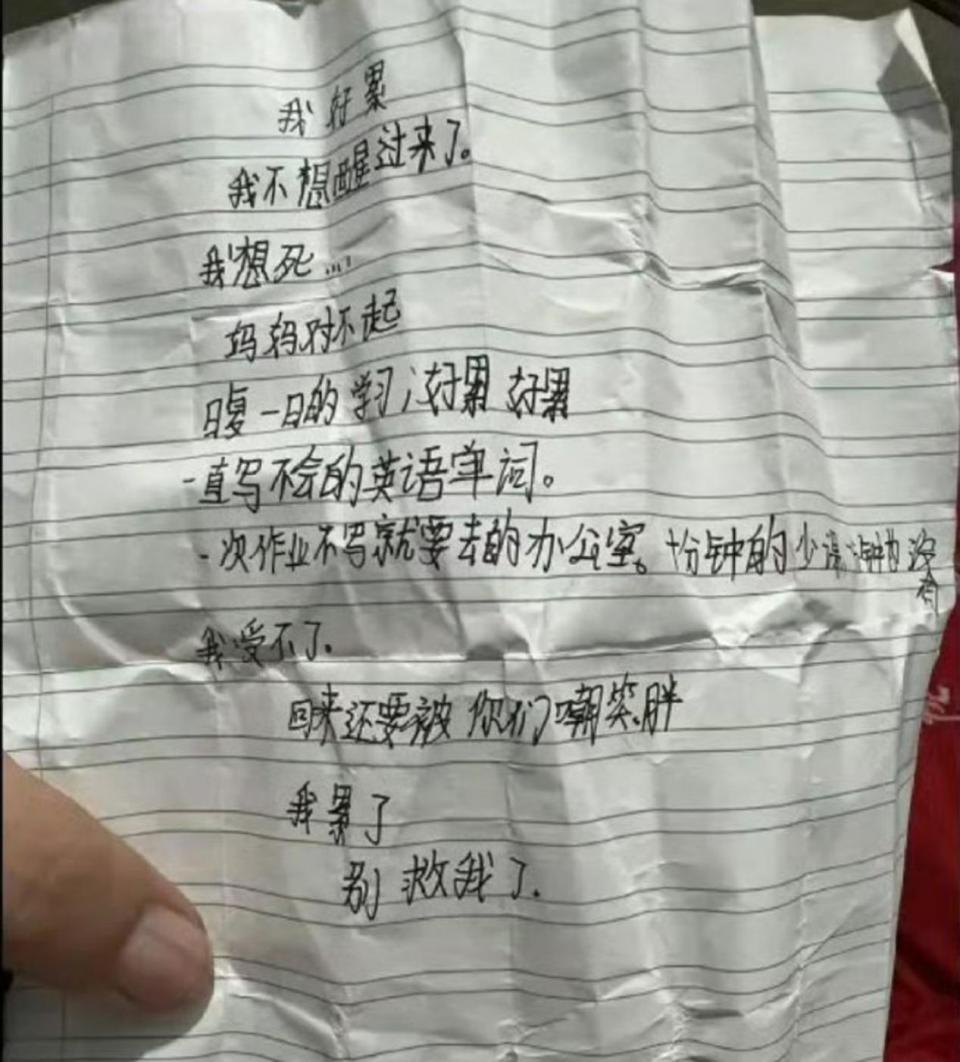 我好累
我不想醒过来了。
我想死....
妈妈对不起
日复一日的学习,好累 好累
一直写不会的英语单词。
一次作业不写就要去的办公室。十分钟的少课 钟的没
我受不了.
回来还要被你们嘲笑胖
我累了
别救我了.